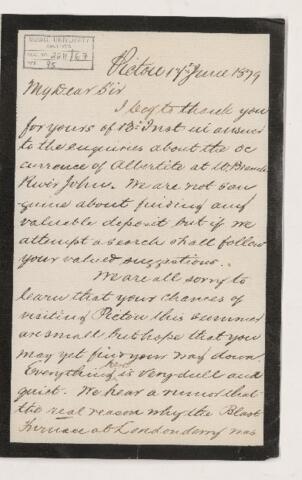 McGILL UNIVERSITY
ARCHIVES
ACC. NO. 2211/67
REF. 95
Pictou 17th June 1879
My Dear Sir
I beg to thank you
for yours of 13th Inst in answer
to the enquiries about the oc
currence of Albertite at W. Branch
River John. We are not san
guine about finding any
valuable deposit but if we
attempt a search shall follow
your valued suggestions.
We are all sorry to
learn that your chances of
visiting Pictou this summer
are small but hope that you
may yet find your way down.
Everything here is very dull and
quiet. We hear a rumor that
the real reason why the Blast
Furnace at Londonderry was